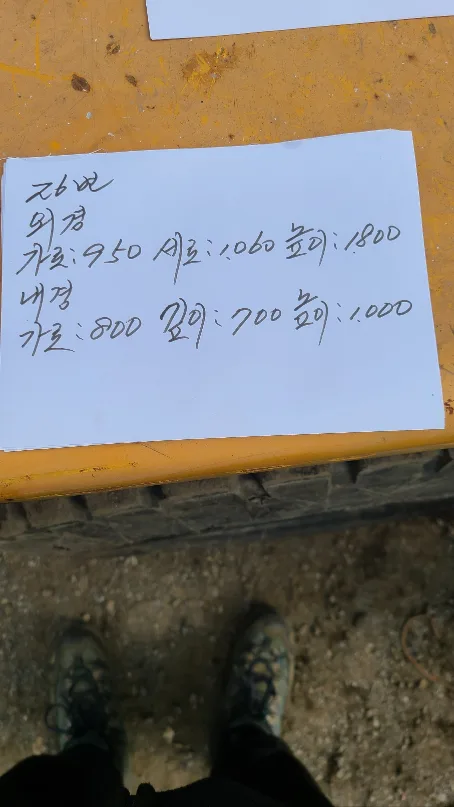 26번
외경
가로:950 세로:1.060 높이:1.800
내경
가로:800 깊이:700 높이:1.000